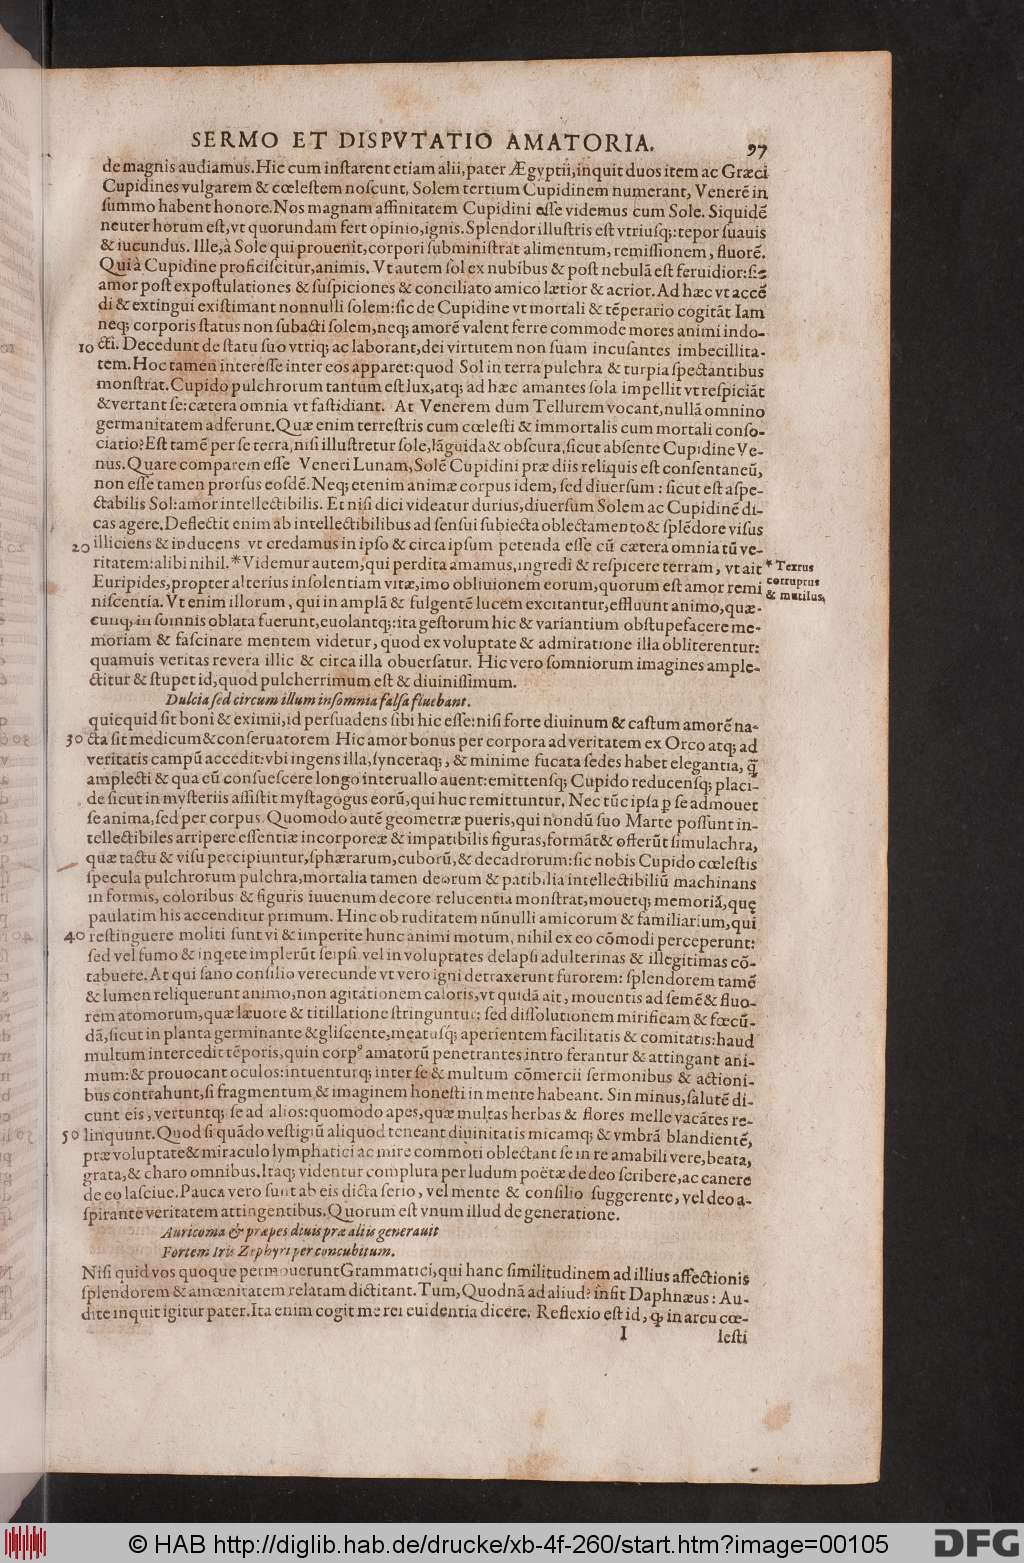 SERMO ET DISPVTATIO AMATORIA. 97
de magnis audiamus. Hic cum instarent etiam alii, pater Ægyptii, inquit duos item ac Græci
Cupidines vulgarem & cœlestem noscunt, Solem tertium Cupidinem numerant, Venerẽ in
summo habent honore. Nos magnam affinitatem Cupidini esse videmus cum Sole. Siquidẽ
neuter horum est, vt quorundam fert opinio, ignis. Splendor illustris est vtriusq;: tepor suauis
& iucundus. Ille, à Sole qui prouenit, corpori subministrat alimentum, remissionem, fluorẽ.
Qui à Cupidine proficiscitur, animis. Vt autem sol ex nubibus & post nebulã est feruidior: sic
amor post expostulationes & suspiciones & conciliato amico lætior & acrior. Ad hæc vt accẽ
di & extingui existimant nonnulli solem: sic de Cupidine vt mortali & tẽperario cogitãt Iam
neq; corporis status non subacti solem, neq; amorẽ valent ferre commode mores animi indo-
10 cti. Decedunt de statu suo vtriq; ac laborant, dei virtutem non suam incusantes imbecillita-
tem. Hoc tamen interesse inter eos apparet: quod Sol in terra pulchra & turpia spectantibus
monstrat. Cupido pulchrorum tantum est lux, atq; ad hæc amantes sola impellit vt respiciãt
& vertant se: cætera omnia vt fastidiant. At Venerem dum Tellurem vocant, nullã omnino
germanitatem adferunt. Quæ enim terrestris cum cœlesti & immortalis cum mortali conso-
ciatio? Est tamẽ per se terra, nisi illustretur sole, lãguida & obscura, sicut absente Cupidine Ve-
nus. Quare comparem esse Veneri Lunam, Solẽ Cupidini præ diis reliquis est consentaneũ,
non esse tamen prorsus eosdẽ. Neq; etenim animæ corpus idem, sed diuersum: sicut est aspe-
ctabilis Sol: amor intellectibilis. Et nisi dici videatur durius, diuersum Solem ac Cupidinẽ di-
cas agere. Deflectit enim ab intellectibilibus ad sensui subiecta oblectamento & splẽdore visus
20 illiciens & inducens vt credamus in ipso & circa ipsum petenda esse cũ cætera omnia tũ ve-
ritatem: alibi nihil. * Videmur autem, qui perdita amamus, ingredi & respicere terram, vt ait
* Textus
corruptus
& mutilus.
Euripides, propter alterius insolentiam vitæ, imo obliuionem eorum, quorum est amor remi
niscentia. Vt enim illorum, qui in amplã & fulgentẽ lucem excitantur, effluunt animo, quæ-
cunq; in somnis oblata fuerunt, euolantq;: ita gestorum hic & variantium obstupefacere me-
moriam & fascinare mentem videtur, quod ex voluptate & admiratione illa obliterentur:
quamuis veritas reuera illic & circa illa obuersatur. Hic vero somniorum imagines ample-
ctitur & stupet id, quod pulcherrimum est & diuinissimum.
Dulcia sed circum illum insomnia falsa fluebant.
quicquid sit boni & eximii, id persuadens sibi hic esse: nisi forte diuinum & castum amorẽ na-
30 cta sit medicum & conseruatorem Hic amor bonus per corpora ad veritatem ex Orco atq; ad
veritatis campũ accedit: vbi ingens illa, synceraq;, & minime fucata sedes habet elegantia, q̃
amplecti & qua cũ consuescere longo interuallo auent: emittensq; Cupido reducensq; placi-
de sicut in mysteriis assistit mystagogus eorũ, qui huc remittuntur. Nec tũc ipsa p se admouet
se anima, sed per corpus. Quomodo autẽ geometræ pueris, qui nondũ suo Marte possunt in-
tellectibiles arripere essentiæ incorporeæ & impatibilis figuras, formãt & offerũt simulachra,
quæ tactu & visu percipiuntur, sphærarum, cuborũ, & decadrorum: sic nobis Cupido cœlestis
specula pulchrorum pulchra, mortalia tamen deorum & patibilia intellectibiliũ machinans
in formis, coloribus & figuris iuuenum decore relucentia monstrat, mouetq; memoriã, quę
paulatim his accenditur primum. Hinc ob ruditatem nũnulli amicorum & familiarium, qui
40 restinguere moliti sunt vi & imperite hunc animi motum, nihil ex eo cõmodi perceperunt:
sed vel fumo & inqete implerũt se: ipsi vel in voluptates delapsi adulterinas & illegitimas cõ-
tabuere. At qui sano consilio verecunde vt vero igni detraxerunt furorem: splendorem tamẽ
& lumen reliquerunt animo, non agitationem caloris, vt quidã ait, mouentis ad semẽ & fluo-
rem atomorum, quæ læuore & titillatione stringuntur: sed dissolutionem mirificam & fœcũ-
dã, sicut in planta germinante & gliscente, meatusq; aperientem facilitatis & comitatis: haud
multum intercedit tẽporis, quin corpꝰ amatorũ penetrantes intro ferantur & attingant ani-
mum: & prouocant oculos: intuenturq; inter se & multum cõmercii sermonibus & actioni-
bus contrahunt, si fragmentum & imaginem honesti in mente habeant. Sin minus, salutẽ di-
cunt eis, vertuntq; se ad alios: quomodo apes, quæ multas herbas & flores melle vacãtes re-
50 linquunt. Quod si quãdo vestigiũ aliquod teneant diuinitatis micamq; & vmbrã blandientẽ,
præ voluptate & miraculo lymphatici ac mire commoti oblectant se in re amabili vere, beata,
grata, & charo omnibus. Itaq; videntur complura per ludum poëtæ de deo scribere, ac canere
de eo lasciue. Pauca vero sunt ab eis dicta serio, vel mente & consilio suggerente, vel deo a-
spirante veritatem attingentibus. Quorum est vnum illud de generatione.
Auricoma & præpes diuis præ aliis generauit
Fortem Iris Zephyri per concubitum.
Nisi quid vos quoque permouerunt Grammatici, qui hanc similitudinem ad illius affectionis
splendorem & amœnitatem relatam dictitant. Tum, Quodnã ad aliud? insit Daphnæus: Au-
dite inquit igitur pater. Ita enim cogit me rei euidentia dicere. Reflexio est id, ꝙ in arcu cœ-
I lesti
© HAB http://diglib.hab.de/drucke/xb-4f-260/start.htm?image=00105
DFG